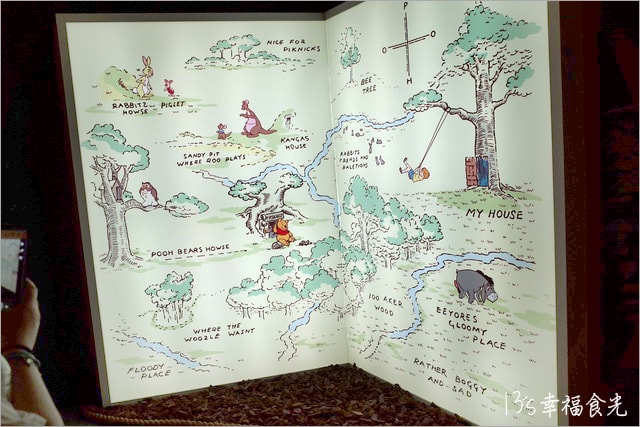 NICE FOR
PIKNICKS
RABBITZ
HOWSE
PIGLET
SANDY PIT
WHERE ROO PLAYS
KANGAS
HOUSE
POOH BEARS HOWSE
WHERE THE
WOOZLE WASNT
FLOODY
PLACE
P
O
O
H
BEE
TREE
RABBITS
FRENDS AND
RALETIONS
MY HOUSE
100 ACER
WOOD
EEYORES
GLOOMY
PLACE
RATHER BOGGY
AND SAD
13's幸福食光